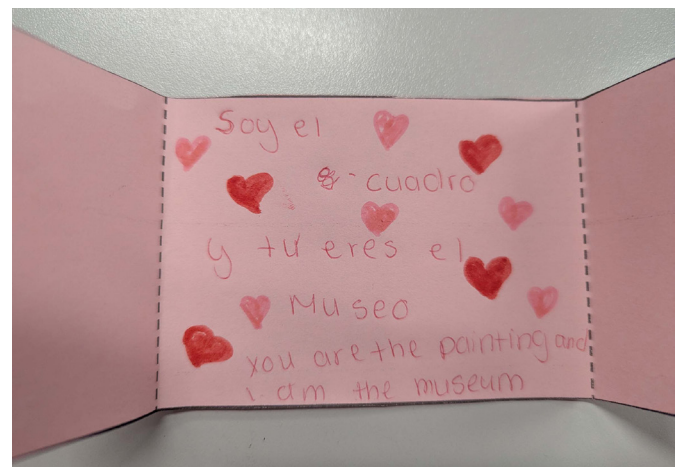 Soy el
cuadro
y tú eres el
Museo
you are the painting and
i am the museum